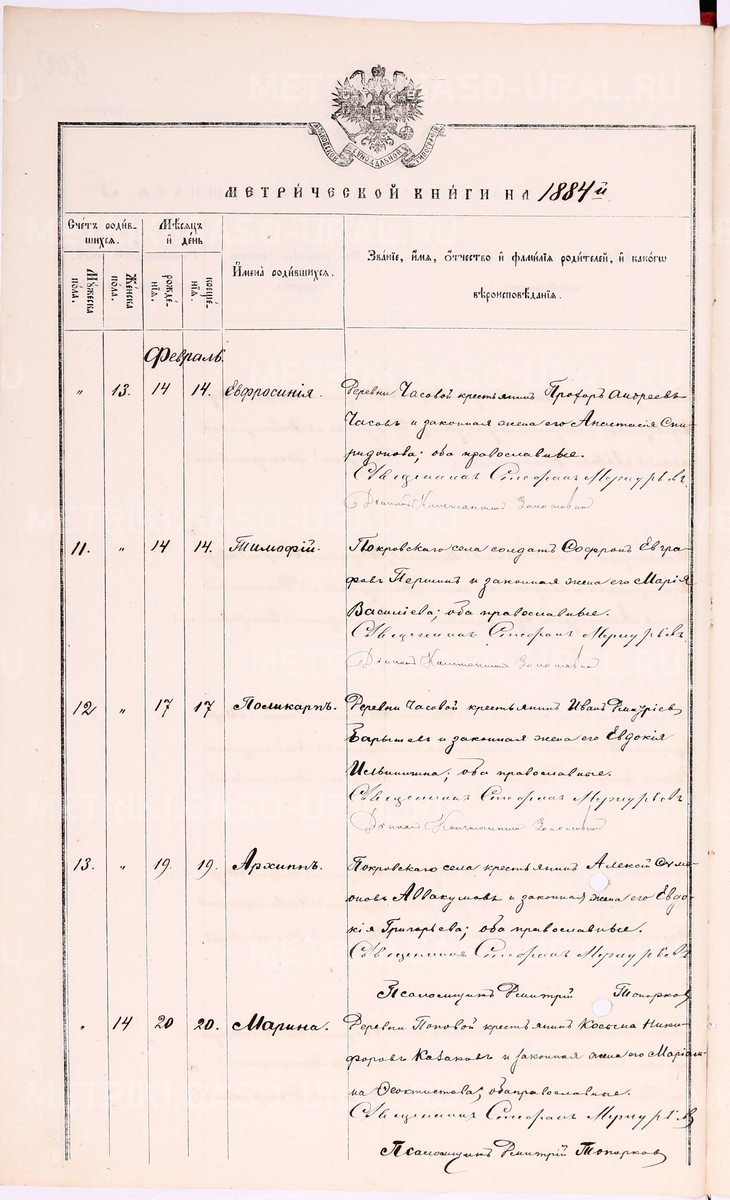 МОСКОВСКОЙ СѴНОДАЛЬНОЙ ТИПОГРАФІИ
МЕТРИ́ЧЕСКОЙ КНИ́ГИ НА 1884й
Сче́тъ роди́в-
шихся.
Мꙋ́жеска
по́ла.
Же́нска
по́ла.
Мѣ́сяцъ
и҆ де́нь
рожде́-
нїя.
креще́-
нїя.
И҆мена̀ роди́вшихся.
Зва́нїе, и҆́мя, ѻ҆́тчество и҆ фамѝлїѧ роди́телей, и҆ како́гѡ
вѣроисповѣ́данїя.
Февраль.
" 13. 14 14. Евфросинія. Деревни Часовой крестьянинъ Прохоръ Андреевъ
Часовъ и законная жена его Анастасія Спи-
ридонова; оба православные.
Священникъ Стефанъ Меркурьевъ
Діаконъ Константинъ
11. " 14 14. Тимофій. Покровскаго села солдатъ Софронъ Евгра-
фовъ Першинъ и законная жена его Марія
Василіева; оба православные.
Священникъ Стефанъ Меркурьевъ
Діаконъ Константинъ
12 " 17 17 Поликарпъ. Деревни Часовой крестьянинъ Иванъ Димитріевъ
Барышевъ и законная жена его Евдокія
Ильинична; оба православные.
Священникъ Стефанъ Меркурьевъ
Діаконъ Константинъ
13. " 19. 19. Архиппъ. Покровскаго села крестьянинъ Алексій Сѵме-
оновъ Аввакумовъ и законная жена его Евдо-
кія Григорьева; оба православные.
Священникъ Стефанъ Меркурьевъ
Псаломщикъ Димитрій Топорковъ
" 14 20 20. Марина. Деревни Поповой крестьянинъ Косьма Ники-
форовъ Казаковъ и законная жена его Маріам-
на Ѳеоктистова; оба православные.
Священникъ Стефанъ Меркурьевъ
Псаломщикъ Димитрій Топорковъ